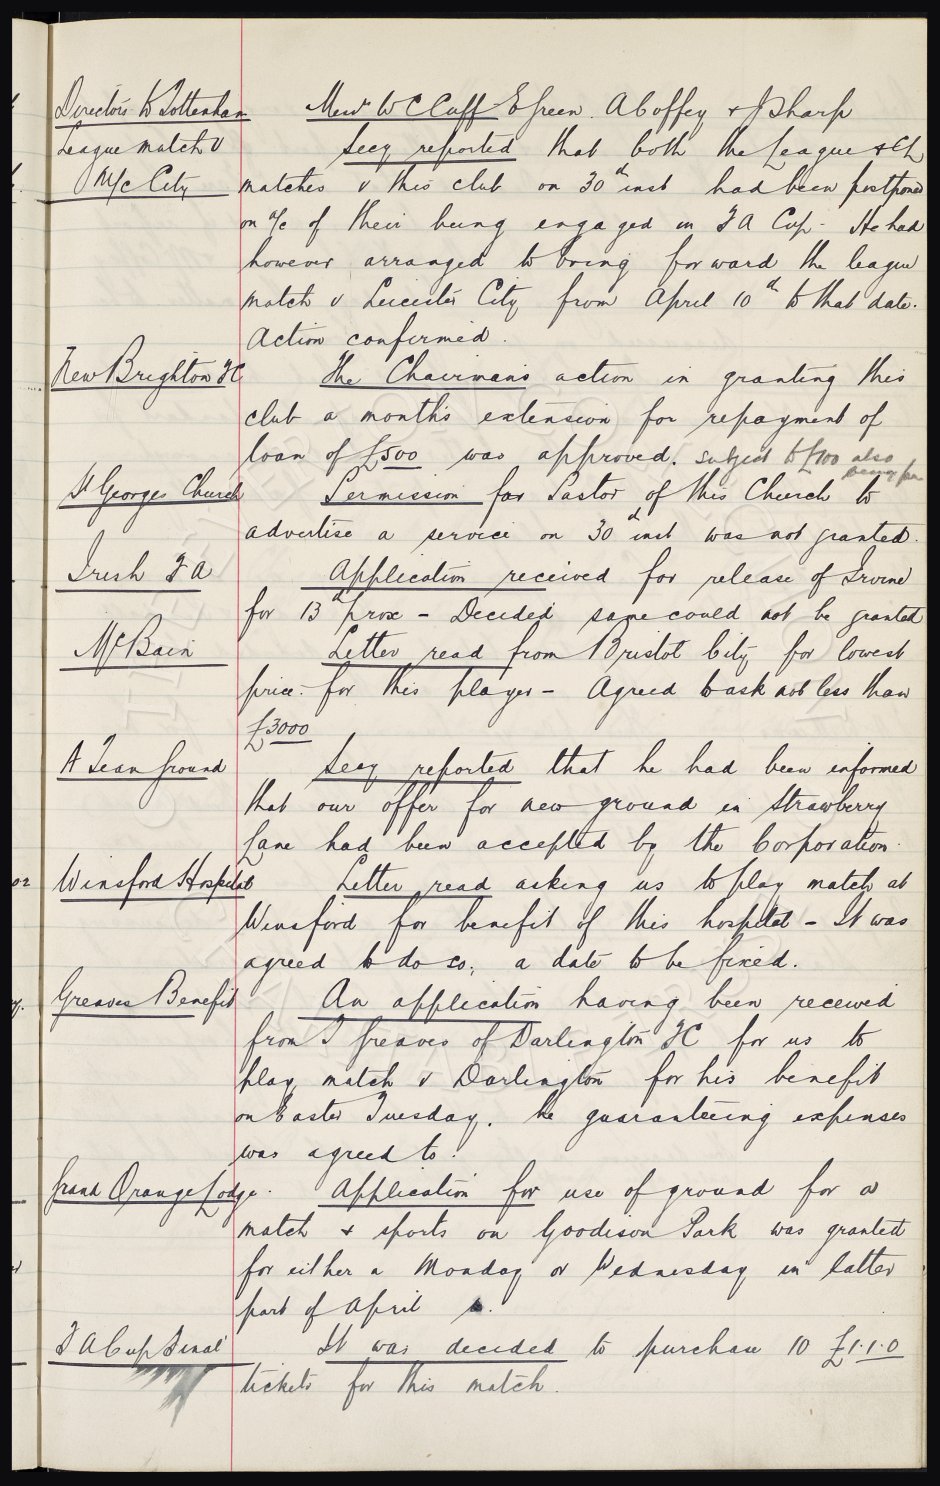 Directors to Tottenham Messrs W C Cuff E Green. A Coffey & J Sharp
League match v Secy reported that both the League & CL
M/c City matches v this club on 30th inst had been postponed
on a/c of their being engaged in F A Cup - He had
however arranged to bring forward the league
match v Leicester City from April 10th to that date.
Action confirmed.
New Brighton FC The Chairman's action in granting this
club a month's extension for repayment of
loan of £500 was approved. subject to £100 also
being
St Georges Church Permission for Pastor of this Church to
advertise a service on 30th inst was not granted.
Irish F A Application received for release of Irvine
for 13th prox - Decided same could not be granted
McBain Letter read from Bristol City for lowest
price for this player - Agreed to ask not less than
£3000
A Team Ground Secy reported that he had been informed
that our offer for new ground in Strawberry
Lane had been accepted by the Corporation.
Winsford Hospital Letter read asking us to play match at
Winsford for benefit of this hospital - It was
agreed to do so, a date to be fixed.
Greaves Benefit An application having been received
from T Greaves of Darlington FC for us to
play match v Darlington for his benefit
on Easter Tuesday. he guaranteeing expenses
was agreed to.
Grand Orange Lodge. Application for use of ground for a
match & sports on Goodison Park was granted
for either a Monday or Wednesday in latter
part of April
F A Cup Final It was decided to purchase 10 £1.1.0
tickets for this match.